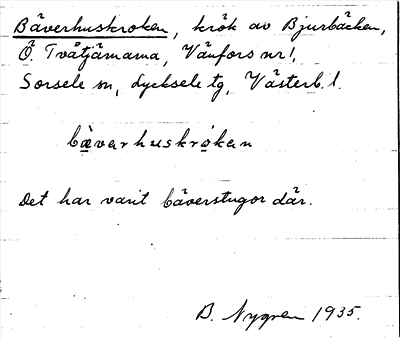 Bäverhuskroken, krök av Bjurbäcken,
Ö. Tvåtjärnarna, Vänfors nr 1,
Sorsele sn, Lycksele tg, Västerb. l.
bäverhuskrokan
Det har varit bäverstugor där.
B. Nygren 1935.